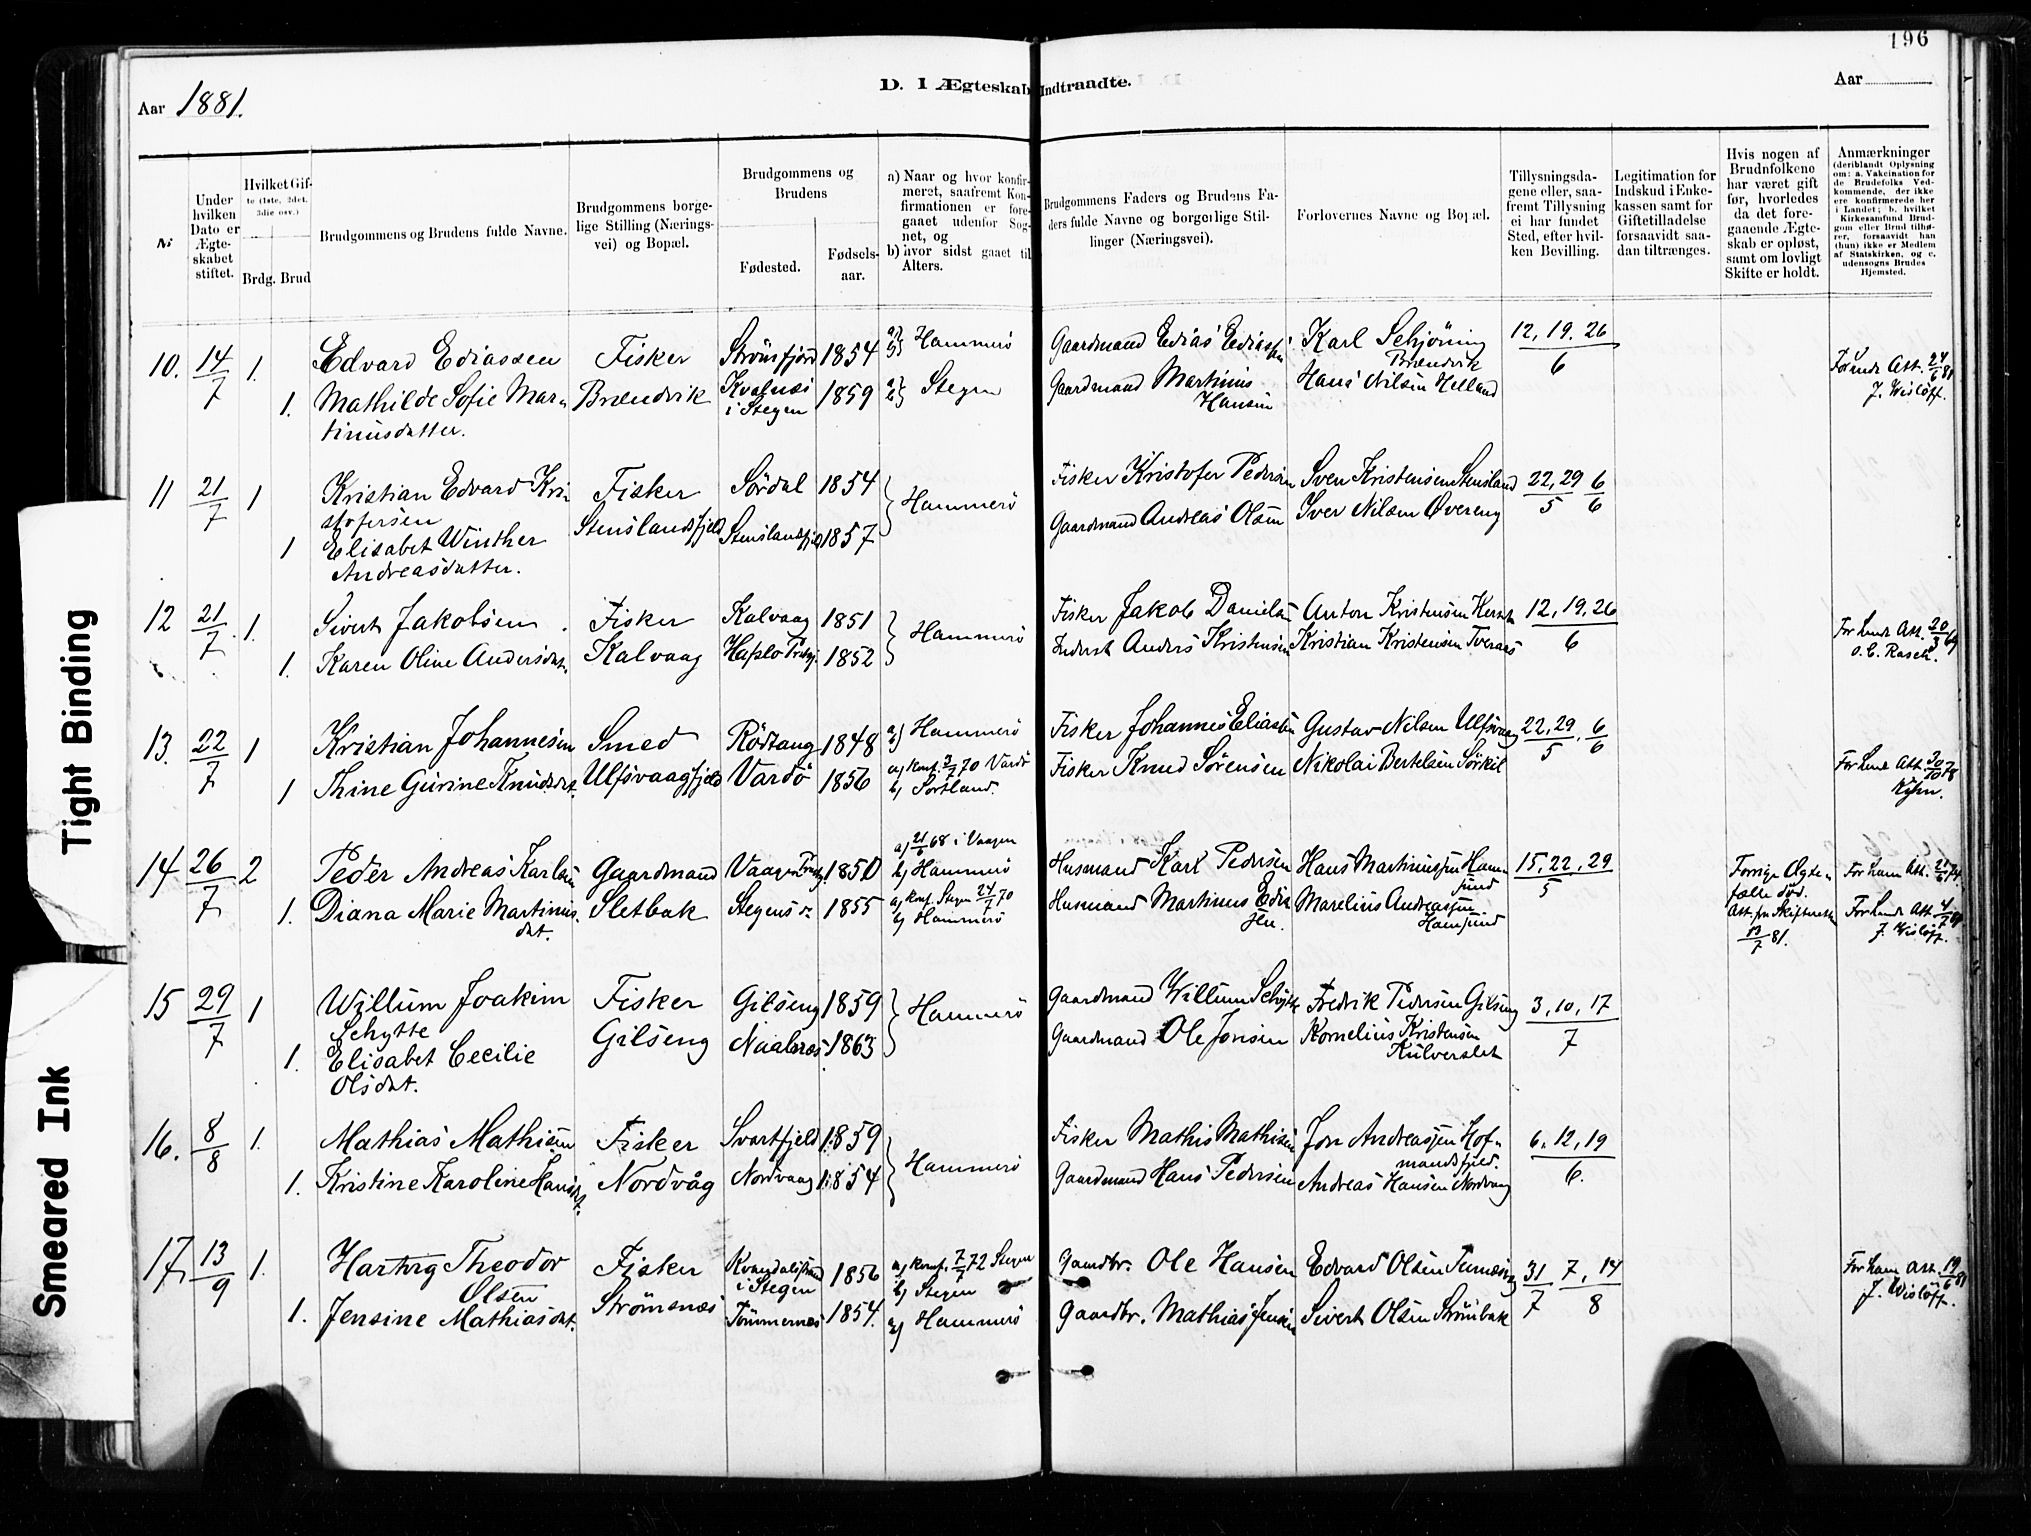 196
D. I Ægteskab Indtraadte.
Aar 1881.
Aar
Nr
Under hvilken Dato er Ægteskabet stiftet.
Hvilket Gifte (1ste, 2det, 3die osv.)
Brdg. Brud
Brudgommens og Brudens fulde Navne.
Brudgommens borgelige Stilling (Næringsvei) og Bopæl.
Brudgommens og Brudens
Fødested.
Fødselsaar.
a) Naar og hvor konfirmeret, saafremt Konfirmationen er foregaaet udenfor Sognet, og
b) hvor sidst gaaet til Alters.
Brudgommens Faders og Brudens Faders fulde Navne og borgerlige Stillinger (Næringsvei).
Forlovernes Navne og Bopæl.
Tillysningsdagene eller, saafremt Tillysning ei har fundet Sted, efter hvilken Bevilling.
Legitimation for Indskud i Enkekassen samt for Giftetilladelse forsaavidt saadan tiltrænges.
Hvis nogen af Brudnfolkene har været gift før, hvorledes da det foregaaende Ægteskab er opløst, samt om lovligt Skifte er holdt.
Anmærkninger (deriblandt Oplysning om: a. Vakcination for de Brudefolks Vedkommende, der ikke ere konfirmerede her i Landet; b. hvilket Kirkesamfund Brudgom eller Brud tilhører, forsaavidt han (hun) ikke er Medlem af Statskirken, og c, udensogns Brudes Hjemsted.
10. 14/7 1. Edvard Ediassen Fisker Strömfjord 1854 a) b) Hammerö Gaardmand Edias Ediassen Karl Schjöning Brændvik 12, 19. 26/6
1. Mathilde Sofie Martinusdatter. Brændvik Kvalnæs i Stegen 1859 a) b) Stegen Gaardmand Martinus Hansen Hans Nilsen Helland For hende Att. 24/6 81 J. Wisløff.
11 21/7 1 Kristian Edvard Kristofersen Fisker Sördal 1854 Hammerö Fisker Kristofer Pedersen Sven Kristensen Stensland 22, 29/5 6/6
1 Elisabet Winther Andreasdatter. Stenslandsfjeld Stenslandsfjeld 1857 Gaardmand Andreas Olsen Iver Nilsen Øvereng
12 21/7 1. Sivert Jakobsen Fisker Kalvaag 1851 Hammerö Fisker Jakob Danielsen Anton Kristensen 12, 19, 26/6
1. Karen Oline Andersdat. Kalvaag 1852 Inderst Anders Kristensen Kristian Kristensen Tveraas For hende Att. 20/3 69 O. C. Rasch.
13. 22/7 1 Kristian Johannesen Smed Rödtang 1848 a) Hammerö Fisker Johannes Eliassen Gustav Nilsen Ulfsvaag 22, 29/5. 6/6
1 Thine Gurine Knudsdat. Ulfsvaagfjeld Vardö 1856 a) Konf. 3/7 70 Vardö b) Sortland. Fisker Knud Sörensen Nikolai Bertelsen Sörkil For hende Att. 30/10 78
14 26/7 2 Peder Andreas Karlsen Gaardmand Vaagen 1850 a) 21/6 68 i Vaagen b) Hammerö Husmand Karl Pedersen Hans Martinussen Hamsund 15, 22, 29/5 Forrige Ægtefælle död. Att. fra Skifteretten 13/7 81. For ham Att.
1. Diana Marie Martinusdat. Sletbak Stegens 1855 a) Konf. Stegen 24/7 70 b) Hammerö Husmand Martinus Marelius Andreassen Hamsund For hende Att. J. Wisløff.
15 29/7 1 Willum Joakim Schytte Fisker Gilseng 1859 Hammerö Gaardmand Willum Schytte Fredrik Pedersen Gilseng 3, 10, 17/7
1. Elisabet Cecilie Olsdat. Gilseng 1863 Gaardmand Ole Jonsen Kornelius Kristensen
16. 8/8 1. Mathias Mathisen Fisker Svartfjeld 1859 Hammerö Fisker Mathis Mathisen Jon Andreassen Hofmandsfjeld. 6, 12, 19/6.
1. Kristine Karoline Hansdt. Nordvåg Nordvaag 1854 Gaardmand Hans Pedersen Andreas Hansen Nordvaag
17. 13/9 1. Hartvig Theodor Olsen Fisker i Stegen 1856 a) Konf. 7/7 72 Stegen b) Stegen Gaardbr. Ole Hansen Edvard Olsen 31/7 7, 14/8 For ham Att. J. Wisløff.
1. Jensine Mathiasdat. Strömsnæs Tömmernæs 1854. Hammerö Gaardbr. Mathias Jensen Sivert Olsen Strömbak
Tight Binding
Smeared Ink